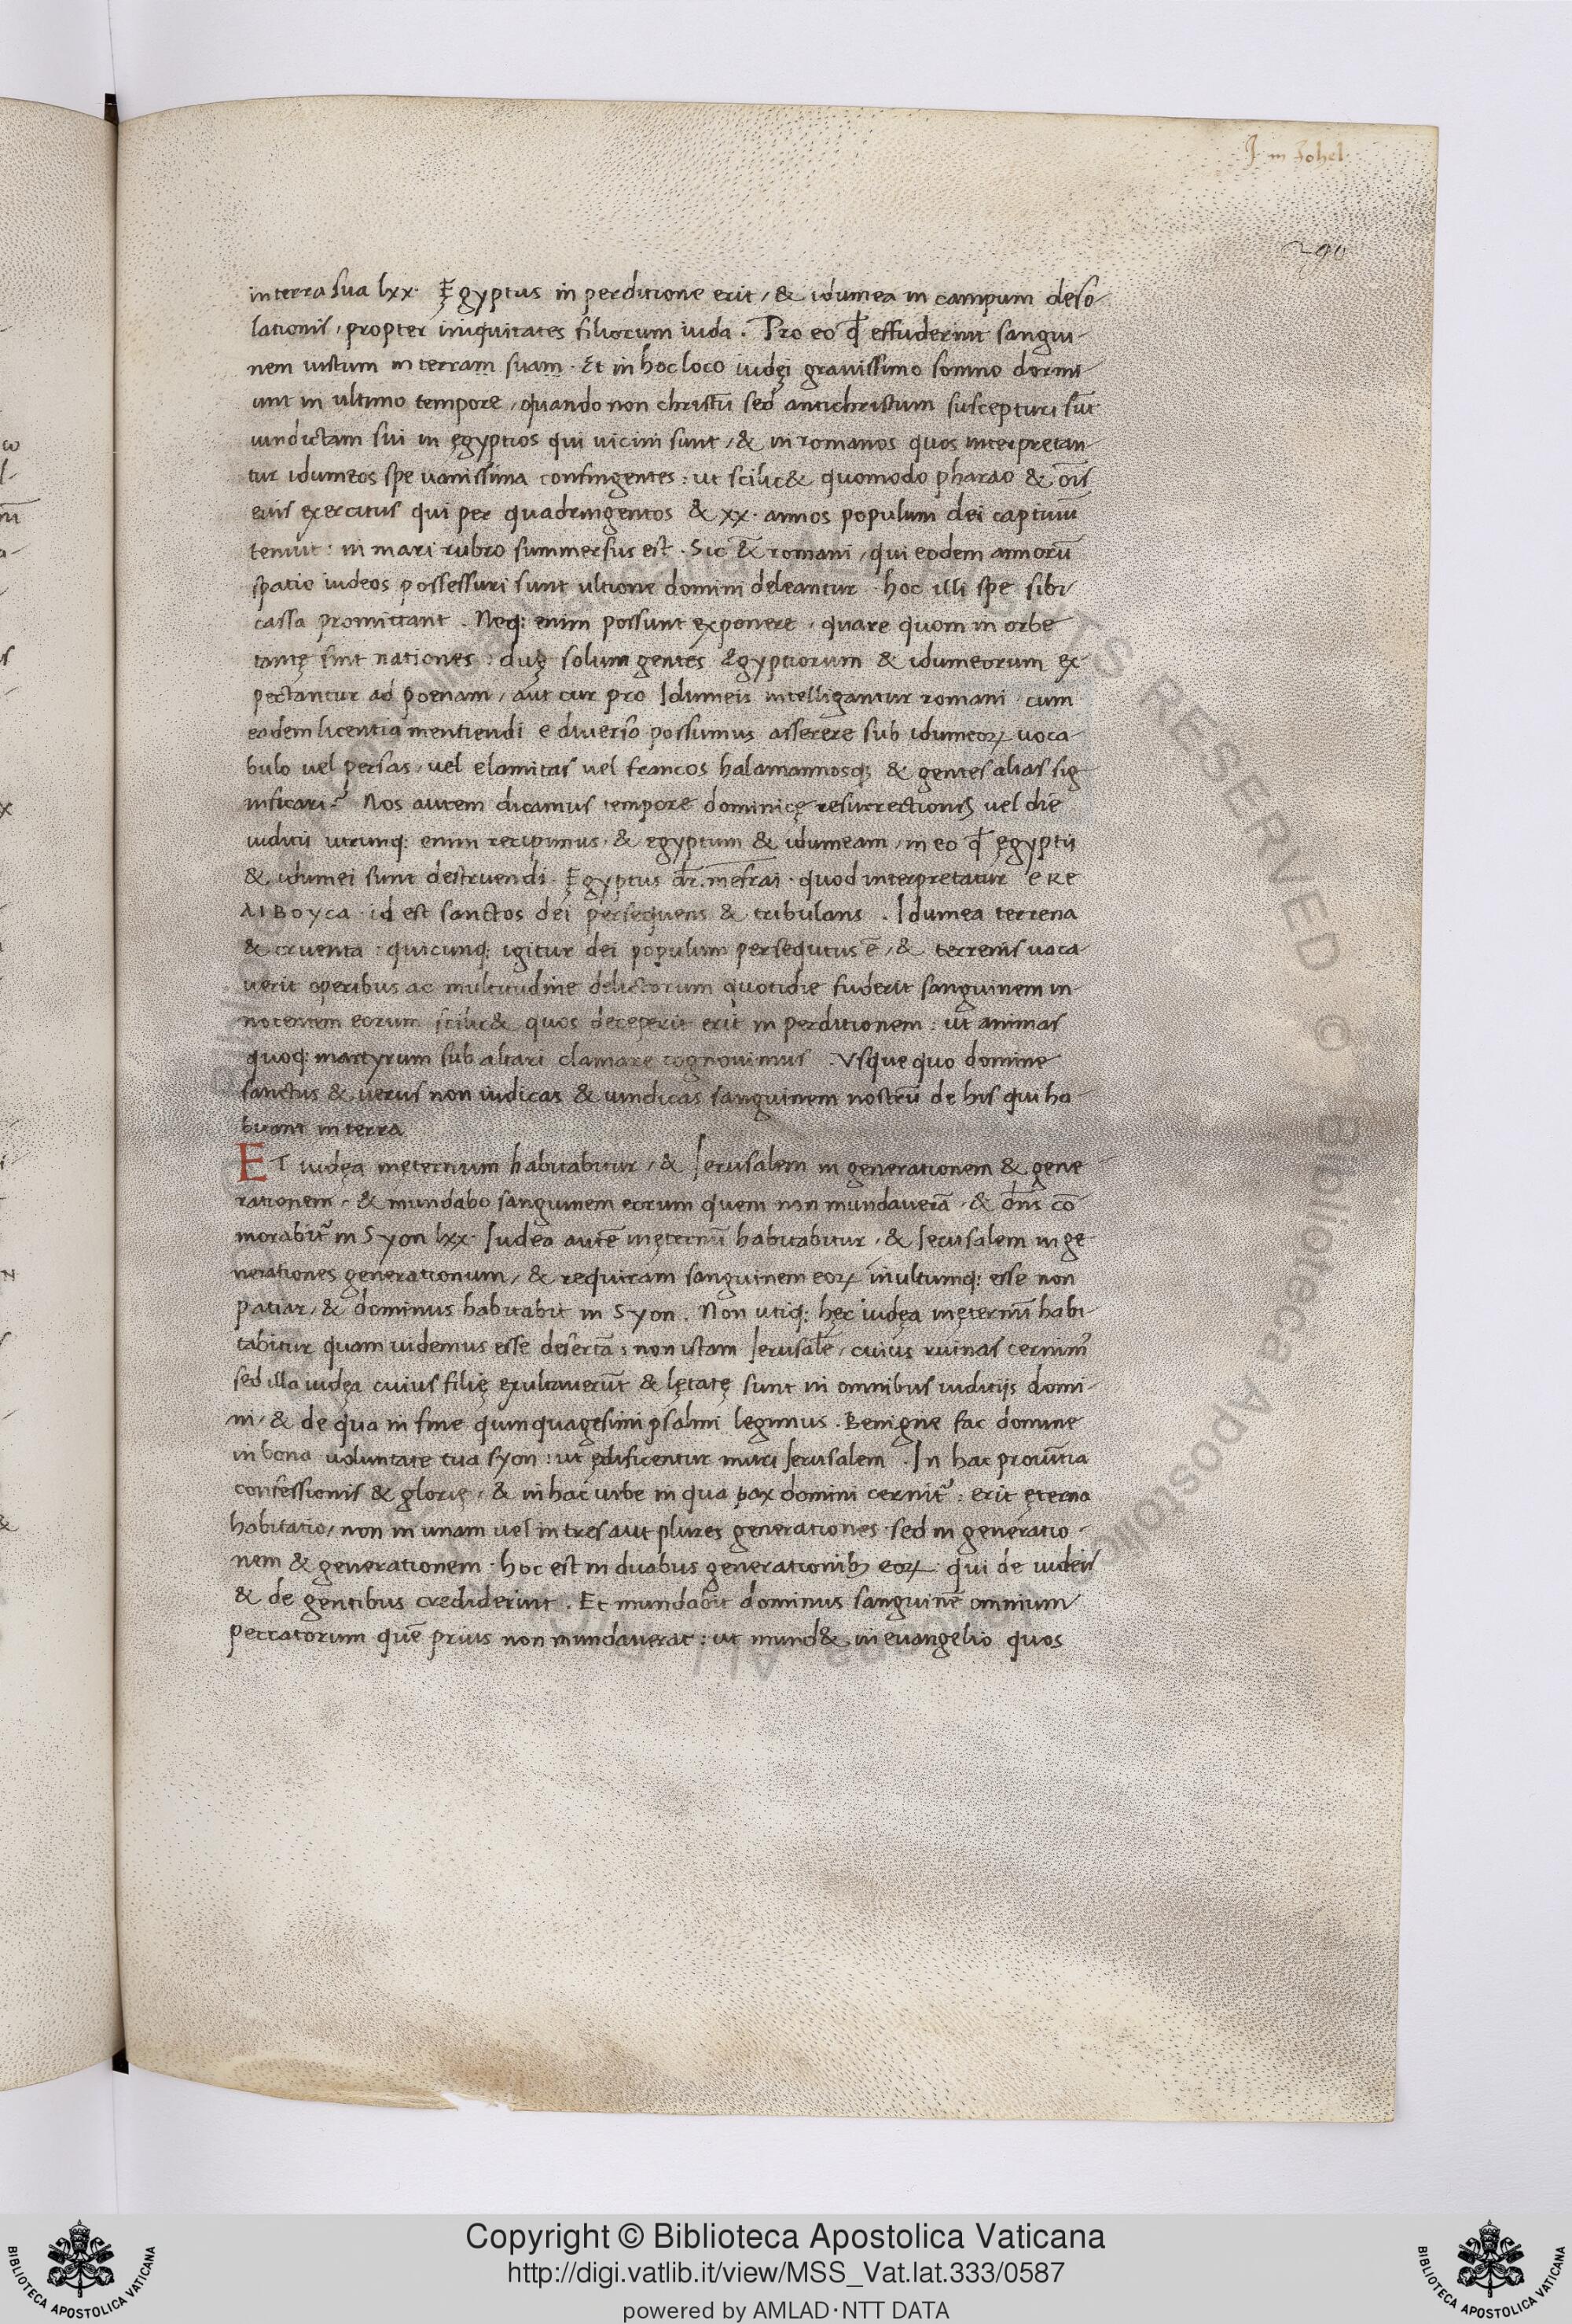 J in Johel
290
in terra sua lxx. Ęgyptus in perditione erit, & idumea in campum deso-
lationis, propter iniquitates filiorum iuda. Pro eo qđ effuderint sangui-
nem iustum in terram suam. Et in hoc loco iudęi grauissimo somno dormi-
unt in ultimo tempore, quando non christū sed antichristum suscepturi sūt
uindictam sui in ęgyptios qui uicini sunt, & in romanos quos interpretan-
tur idumeos spe uanissima confingentes: ut scilic& quomodo pharao & oīs
eius exercitus qui per quadringentos & xx. annos populum dei captiuū
tenuit: in mari rubro summersus est. Sic & romani, qui eodem annorū
spatio iudeos possessuri sunt ultione domini deleantur. hoc illi spe sibi
cassa promittant. Neq: enim possunt exponere, quare quom in orbe
tantę sint nationes: duę solum gentes Ęgyptiorum & idumeorum ex-
pectantur ad poenam, aut cur pro Idumeis intelligantur romani, cum
eadem licentia mentiendi e diuerso possumus asserere sub idumeoꝝ uoca-
bulo uel persas, uel elamitas uel francos halamannosq; & gentes alias sig-
nificari? Nos autem dicamus tempore dominicę resurrectionis uel die
iuditii utrunq: enim recipimus, & egyptum & idumeam, in eo qđ ęgyptii
& idumei sunt destruendi. Ęgyptus dr̄. mesrai. quod interpretatur eκe
λιβoyca. id est sanctos dei persequens & tribulans. Idumea terrena
& cruenta. quicunq: igitur dei populum persequtus ē, & terrenis uaca-
uerit operibus ac multitudine delictorum quotidie fuderit sanguinem in-
nocentem eorum scilic& quos deceperit erit in perditionem: ut animas
quoq: martyrum sub altari clamare cognouimus. Vsque quo domine
sanctus & uerus non iudicas & uindicas sanguinem nostrū de his qui ha-
bitant in terra
ET iudęa inęternum habitabitur, & Jerusalem in generationem & gene-
rationem, & mundabo sanguinem eorum quem non mundauerā, & dn̄s co-
morabit᷑ in Syon lxx. Judea autē inęternū habitabitur, & Jerusalem in ge
nerationes generationum, & requiram sanguinem eoꝝ inultumq: esse non
patiar, & dominus habitabit in Syon. Non utiq: hęc iudęa inęternū habi-
tabitur quam uidemus esse desertā: non istam Jerusalē, cuius ruinas cernim᷒
sed illa iudęa cuius filię exultauerūt & lętatę sunt in omnibus iuditijs domi-
ni, & de qua in fine quinquagesimi psalmi legimus. Benigne fac domine
in bona uoluntate tua syon: ut ędificentur muri Jerusalem. In hac prouītia
confessionis & glorię, & in hac urbe in qua pax domini cernit᷑: erit ęterna
habitatio, non in unam uel in tres aut plures generationes. sed in generatio-
nem & generationem. hoc est in duabus generationibȝ eoꝝ qui de iudeis
& de gentibus crediderint. Et mundabit dominus sanguinē omnium
peccatorum quē prius non mundauerat: ut mund& in euangelio quos
Copyright © Biblioteca Apostolica Vaticana
http://digi.vatlib.it/view/MSS_Vat.lat.333/0587
powered by AMLAD·NTT DATA
BIBLIOTECA APOSTOLICA VATICANA
BIBLIOTECA APOSTOLICA VATICANA